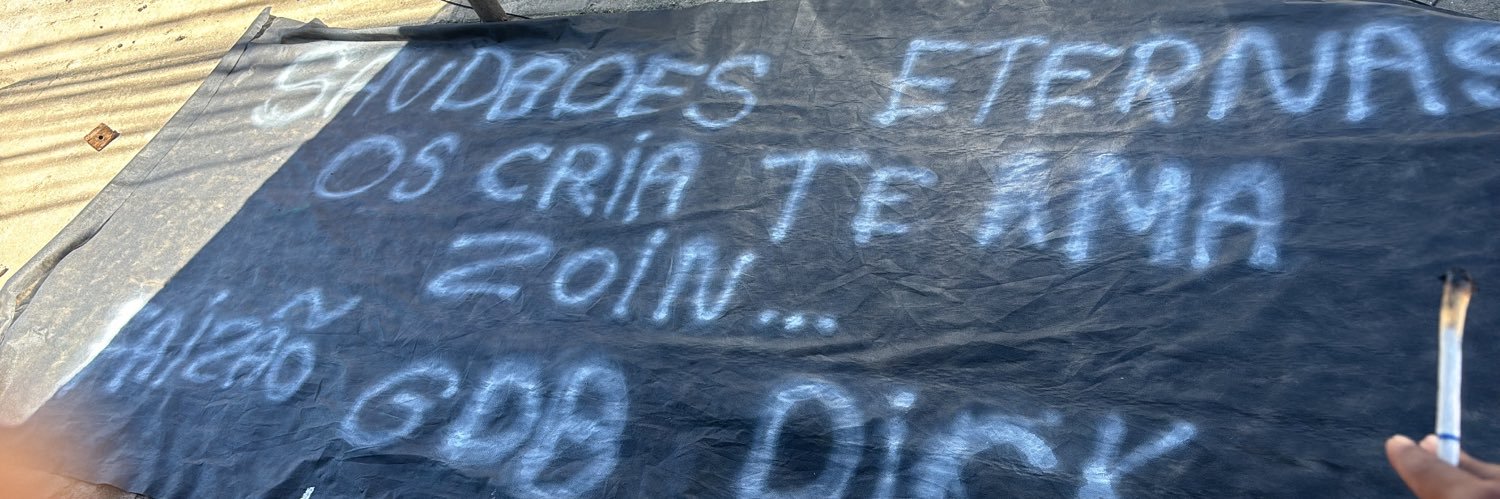 SAUDADES ETERNAS
OS CRIA TE AMA
ZOIN...
GDB